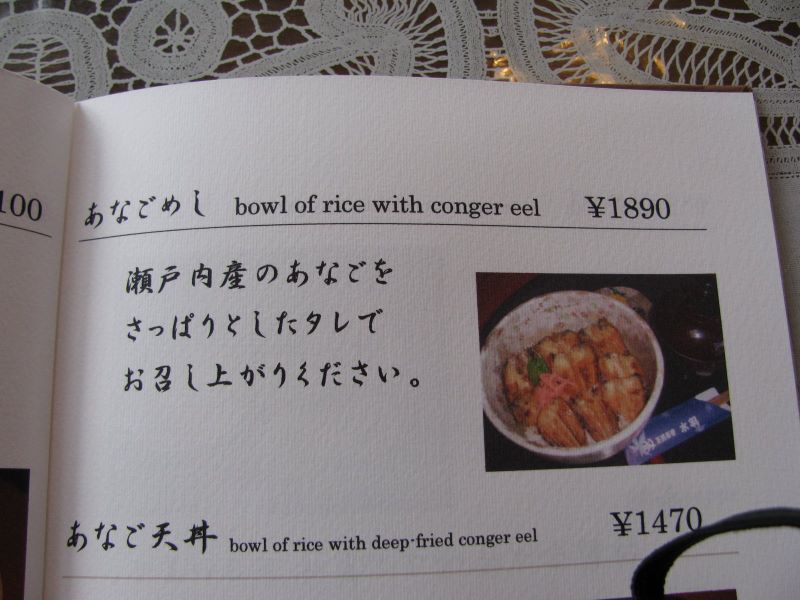 100
あなごめし bowl of rice with conger eel ¥1890
瀬戸内産のあなごを
さっぱりとしたタレで
お召し上がりください。
あなご天丼 bowl of rice with deep-fried conger eel ¥1470